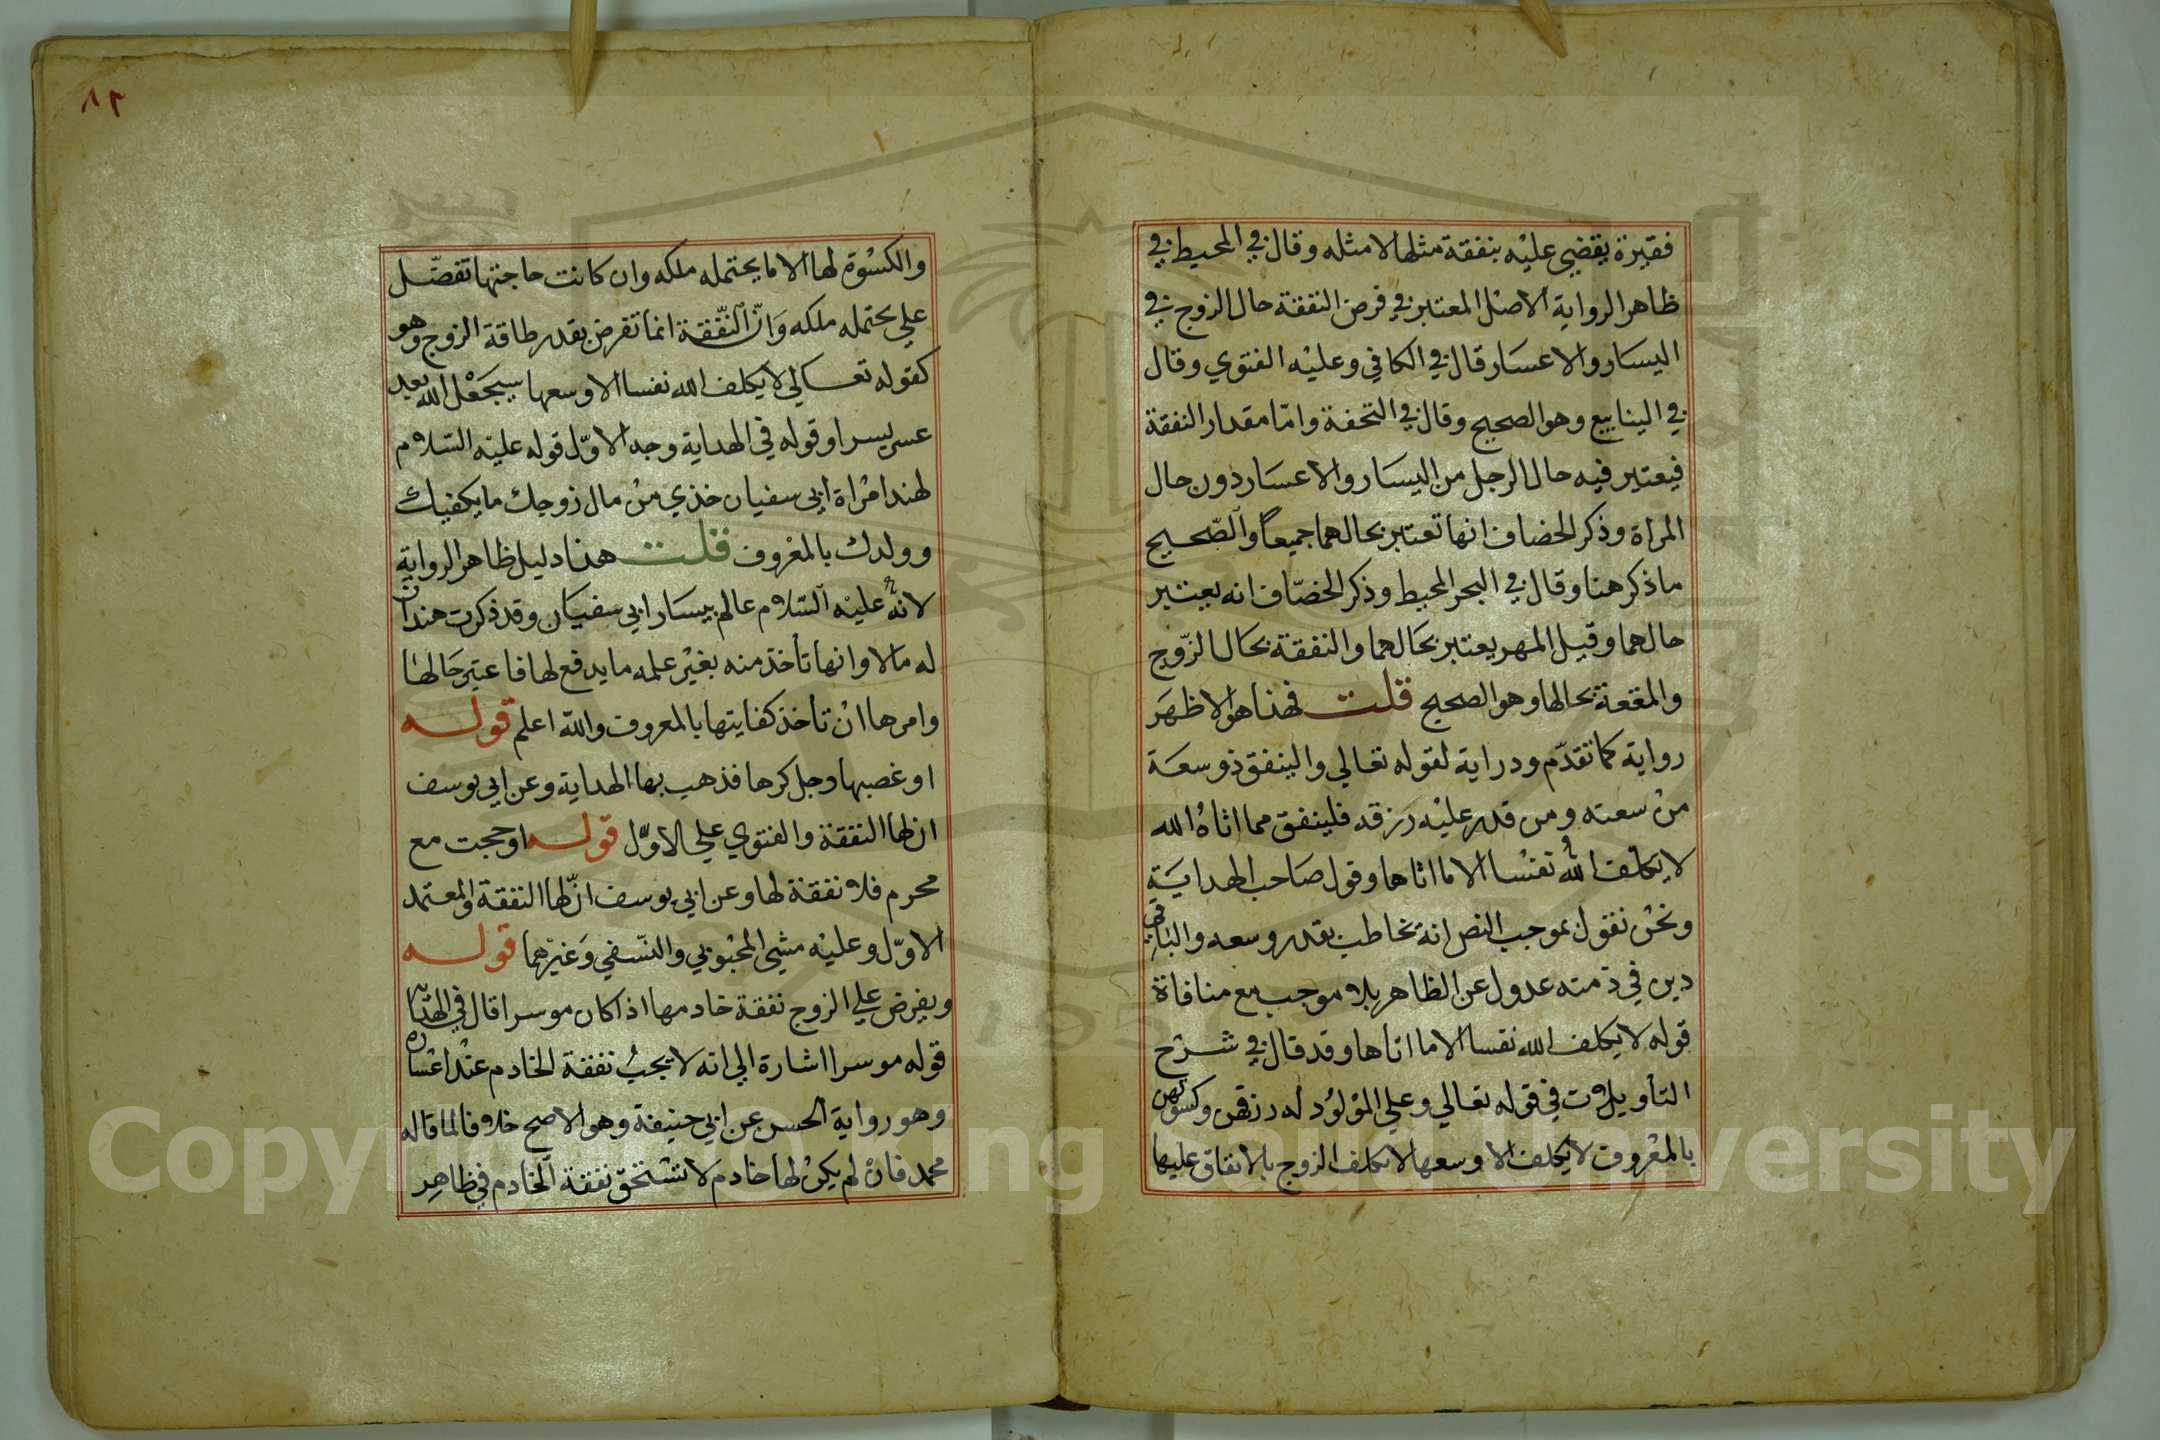 فقيرة يقضي عليه بنفقة مثلها لا مثله وقال في المحيط في
ظاهر الرواية الاصل المعتبر في فرض النفقة حال الزوج في
اليسار والاعسار قال في الكافي وعليه الفتوي وقال
في الينابيع وهو الصحيح وقال في التحفة وامّا مقدار النفقة
فيعتبر فيه حال الرجل من اليسار والاعسار دون حال
المراة وذكر الخصاف انها تعتبر بحالهما جميعاً والصّحيح
ما ذكر هنا وقال في البحر المحيط وذكر الخصّاف انه يعتبر
حالهما وقيل المهر يعتبر بحالهما والنفقة بحال الزّوج
والمقعة بحالها وهو الصحيح قلت فهذا هو الاظهر
رواية كما تقدّم ودراية لقوله تعالي والينفق ذو سعة
من سعته ومن قدر عليه رزقه فلينفق مما اتاه الله
لا يكلف الله نفسا الا ما اتاها وقول صاحب الهداية
ونحن نقول بموجب النص انه يخاطب بقدر وسعه والباقي
دين في ذمته عدول عن الظاهر بلا موجب مع منافاة
قوله لا يكلف الله نفسا الا ما اتاها وقد قال في شرح
التأويلات في قوله تعالي وعلي المولود له رزقهن وكسوتهن
بالمعروف لا يكلف الا وسعها لا يكلف الزوج بالانفاق عليها
٨٣
والكسوة لها الا ما يحتمله ملكه وان كانت حاجتها تفضّل
علي يحتمله ملكه وانّ النّفقة انما تفرض بقدر طاقة الزوج وهو
كقوله تعالي لا يكلف الله نفسا الا وسعها سيجعل الله بعد
عسر يسرا وقوله في الهداية وجه الاوّل قوله عليه السّلام
لهند امراة ابي سفيان خذي من مال زوجك ما يكفيك
وولدك بالمعروف قلت هذا دليل ظاهر الرواية
لانه عليه السّلام عالم بيسار ابي سفيان وقد ذكرت هند ان
له مالا وانها تأخذ منه بغير علمه ما يدفع لها فاعتبر حالها
وامرها ان تأخذ كفايتها بالمعروف والله اعلم قوله
او غصبها رجل كرها فذهب بها الهداية وعن ابي يوسف
ان لها النفقة والفتوي علي الاوّل قوله او حجت مع
محرم فلا نفقة لها وعن ابي يوسف انّ لها النفقة والمعتمد
الاوّل وعليه مشي المحبوبي والنّسفي وغيرهما قوله
ويفرض علي الزوج نفقة خادمها اذا كان موسرا قال في الهداية
قوله موسرا اشارة الي انه لا يجب نفقة الخادم عند اعساره
وهو رواية الحسن عن ابي حنيفة وهو الاصح خلافا لما قاله
محمد فان لم يكن لها خادم لا تستحق نفقة الخادم في ظاهر
Copyright © King Saud University